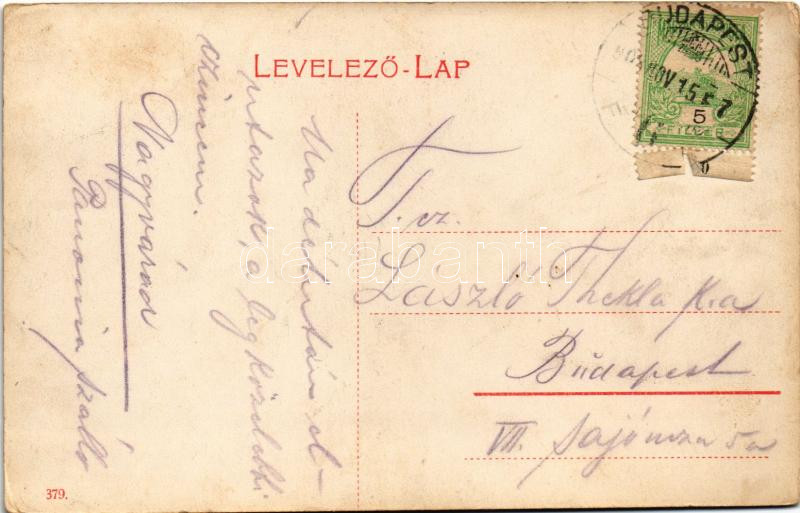 LEVELEZŐ-LAP
BUDAPEST
NOV 15
5
FILLÉR
Ma délután el-
utazok, a legközelebbi
címem.
Nagyvárad
Panonia szálló
T. cz.
László Thekla k.a
Budapest
VII. Sajó utza 5a
379.
darabanth